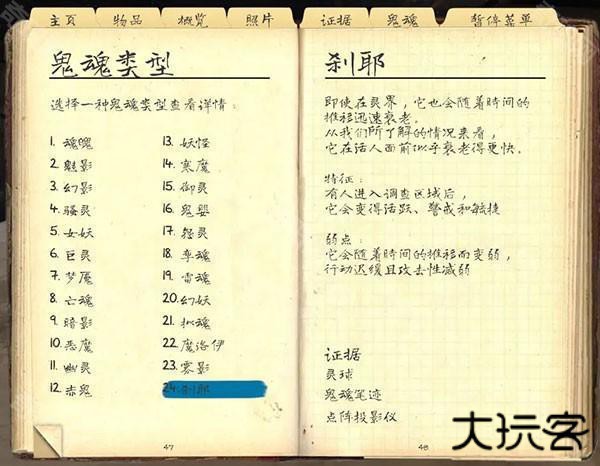 主页 物品 概览 照片 证据 鬼魂 暂停菜单
鬼魂类型
选择一种鬼魂类型查看详情:
1. 魂魄
2. 魅影
3. 幻影
4. 骚灵
5. 女妖
6. 巨灵
7. 梦魇
8. 亡魂
9. 暗影
10. 恶魔
11. 幽灵
12. 赤鬼
13. 妖怪
14. 寒魔
15. 御灵
16. 鬼婴
17. 怨灵
18. 孪魂
19. 雷魂
20. 幻妖
21. 拟魂
22. 魔洛伊
23. 雾影
24. 刹耶
47
刹耶
即使在灵界,它也会随着时间的
推移迅速衰老。
从我们所了解的情况来看,
它在活人面前似乎衰老得更快。
特征:
有人进入调查区域后,
它会变得活跃、警戒和敏捷
弱点:
它会随着时间的推移而变弱,
行动迟缓且攻击性减弱
证据
灵球
鬼魂笔迹
点阵投影仪
48
大玩客